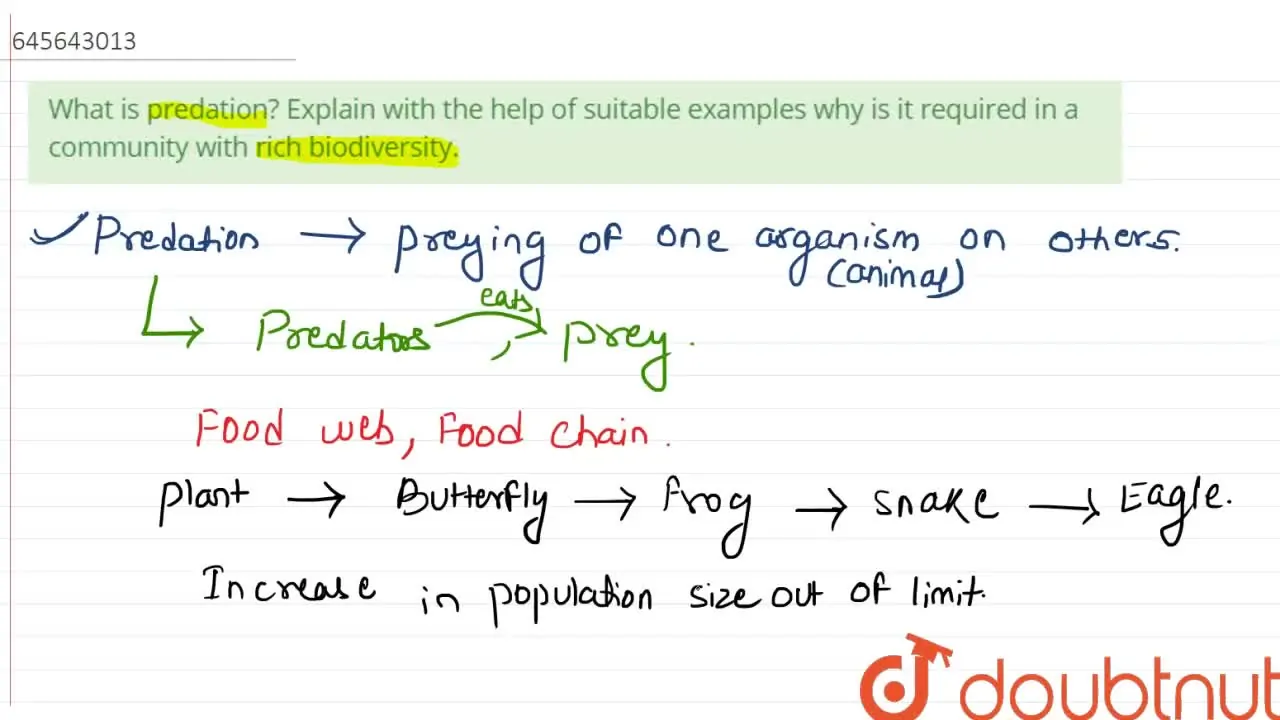 645643013
What is predation? Explain with the help of suitable examples why is it required in a
community with rich biodiversity.
Predation → preying of one organism on others.
(animal)
eats
Predators → prey.
Food web, Food chain.
Plant → Butterfly → frog → snake → Eagle.
Increase in population size out of limit.
doubtnut